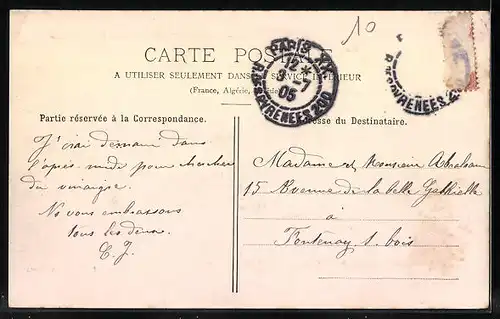 10
CARTE POSTALE
A UTILISER SEULEMENT DANS LE SERVICE INTÉRIEUR
(France, Algérie,
PARIS XX
12 *
3 - 7
05
R. DES PYRENEES 200
PYRENEES 2
Partie réservée à la Correspondance.
J'irai demain dans
l'après midi pour chercher
du vinaigre.
Ns vous embrassons
tous les deux.
Adresse du Destinataire.
Madame et Monsieur Abraham
15 Avenue de la belle Gabrielle
à
Fontenay s. bois